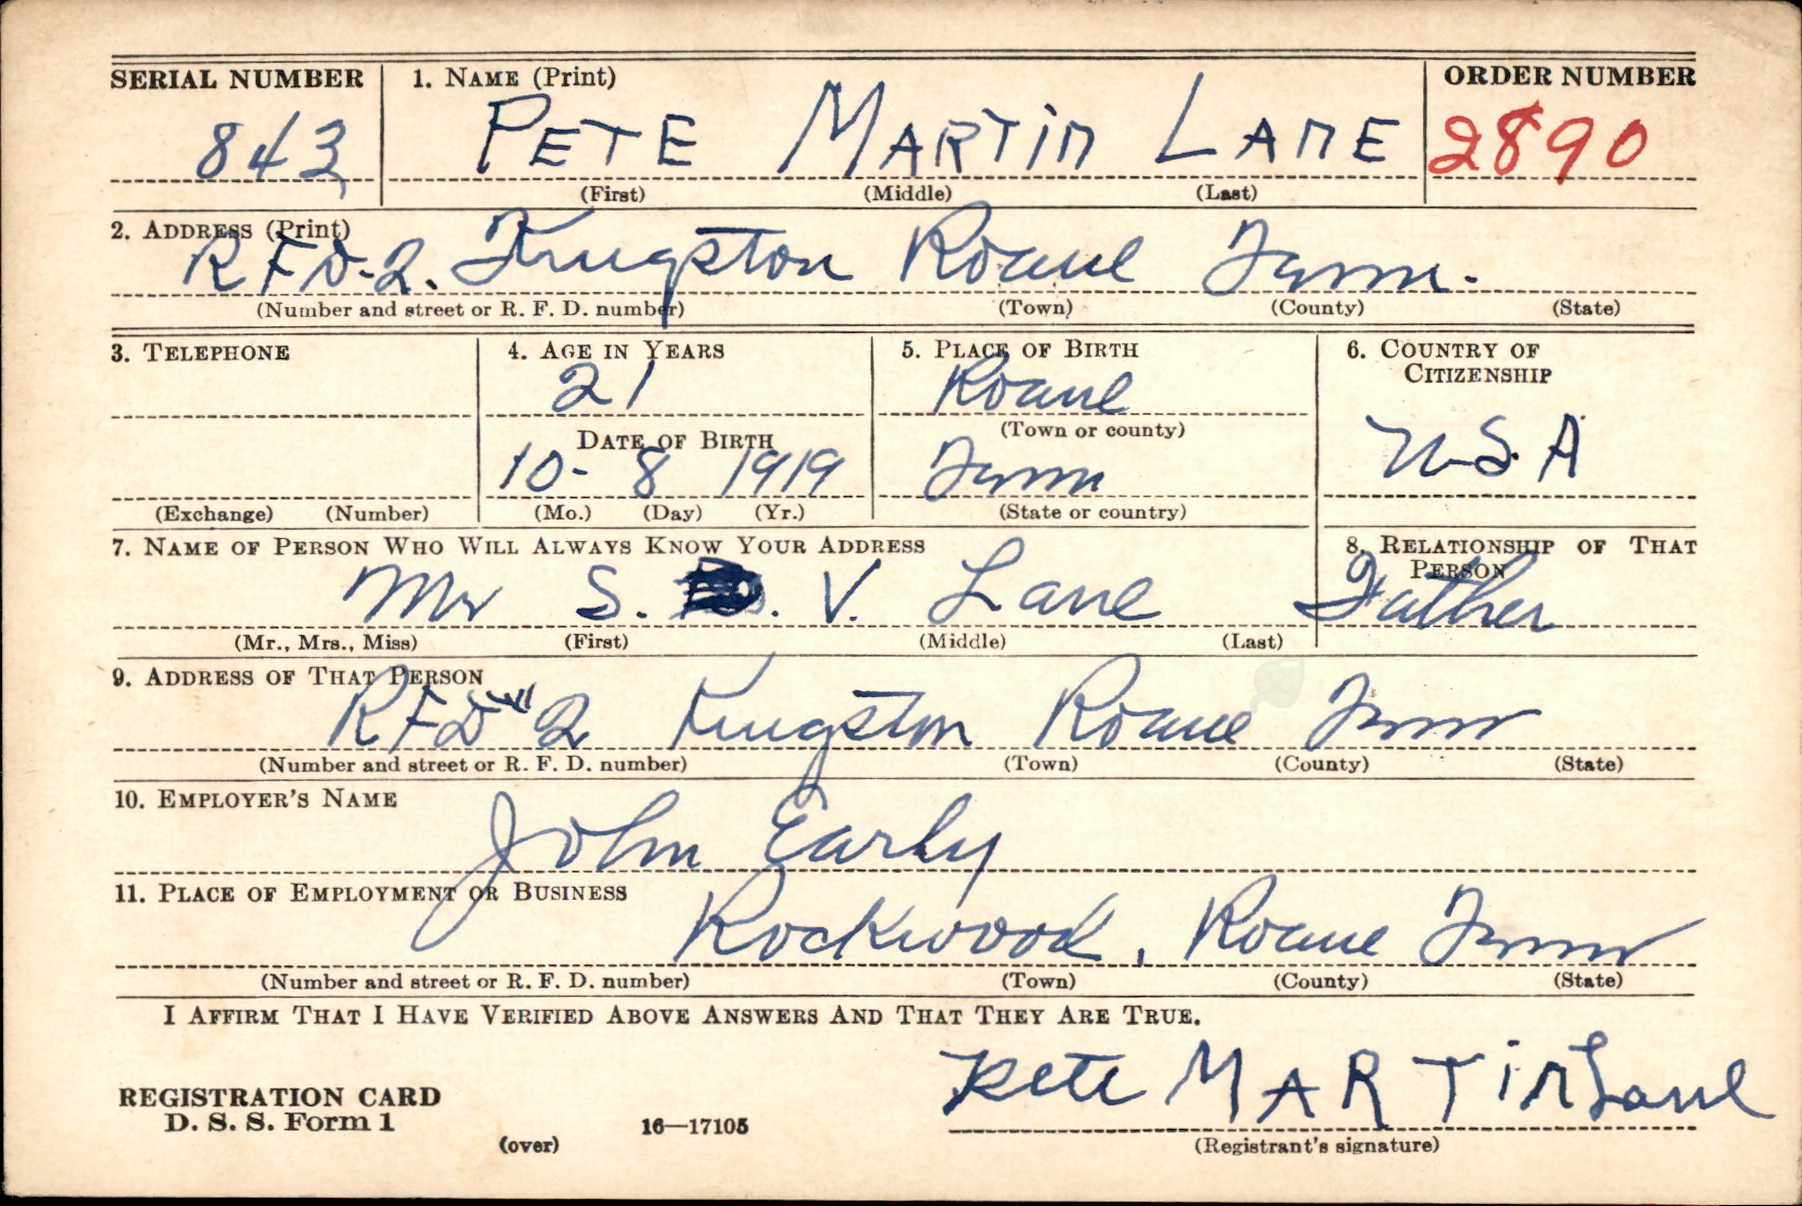 SERIAL NUMBER 1. NAME (Print) ORDER NUMBER
843 PETE MARTIN LANE 2890
(First) (Middle) (Last)
2. ADDRESS (Print)
RFD-2. Kingston Roane Tenn.
(Number and street or R. F. D. number) (Town) (County) (State)
3. TELEPHONE 4. AGE IN YEARS 5. PLACE OF BIRTH 6. COUNTRY OF CITIZENSHIP
21 Roane
DATE OF BIRTH (Town or county) USA
10- 8 1919 Tenn
(Exchange) (Number) (Mo.) (Day) (Yr.) (State or country)
7. NAME OF PERSON WHO WILL ALWAYS KNOW YOUR ADDRESS 8. RELATIONSHIP OF THAT PERSON
Mr S. V. Lane Father
(Mr., Mrs., Miss) (First) (Middle) (Last)
9. ADDRESS OF THAT PERSON
RFD 2 Kingston Roane Tenn
(Number and street or R. F. D. number) (Town) (County) (State)
10. EMPLOYER'S NAME
John Early
11. PLACE OF EMPLOYMENT OR BUSINESS
Rockwood, Roane Tenn
(Number and street or R. F. D. number) (Town) (County) (State)
I AFFIRM THAT I HAVE VERIFIED ABOVE ANSWERS AND THAT THEY ARE TRUE.
Pete MARTIN Lane
REGISTRATION CARD
D. S. S. Form 1 16—17105
(over) (Registrant's signature)